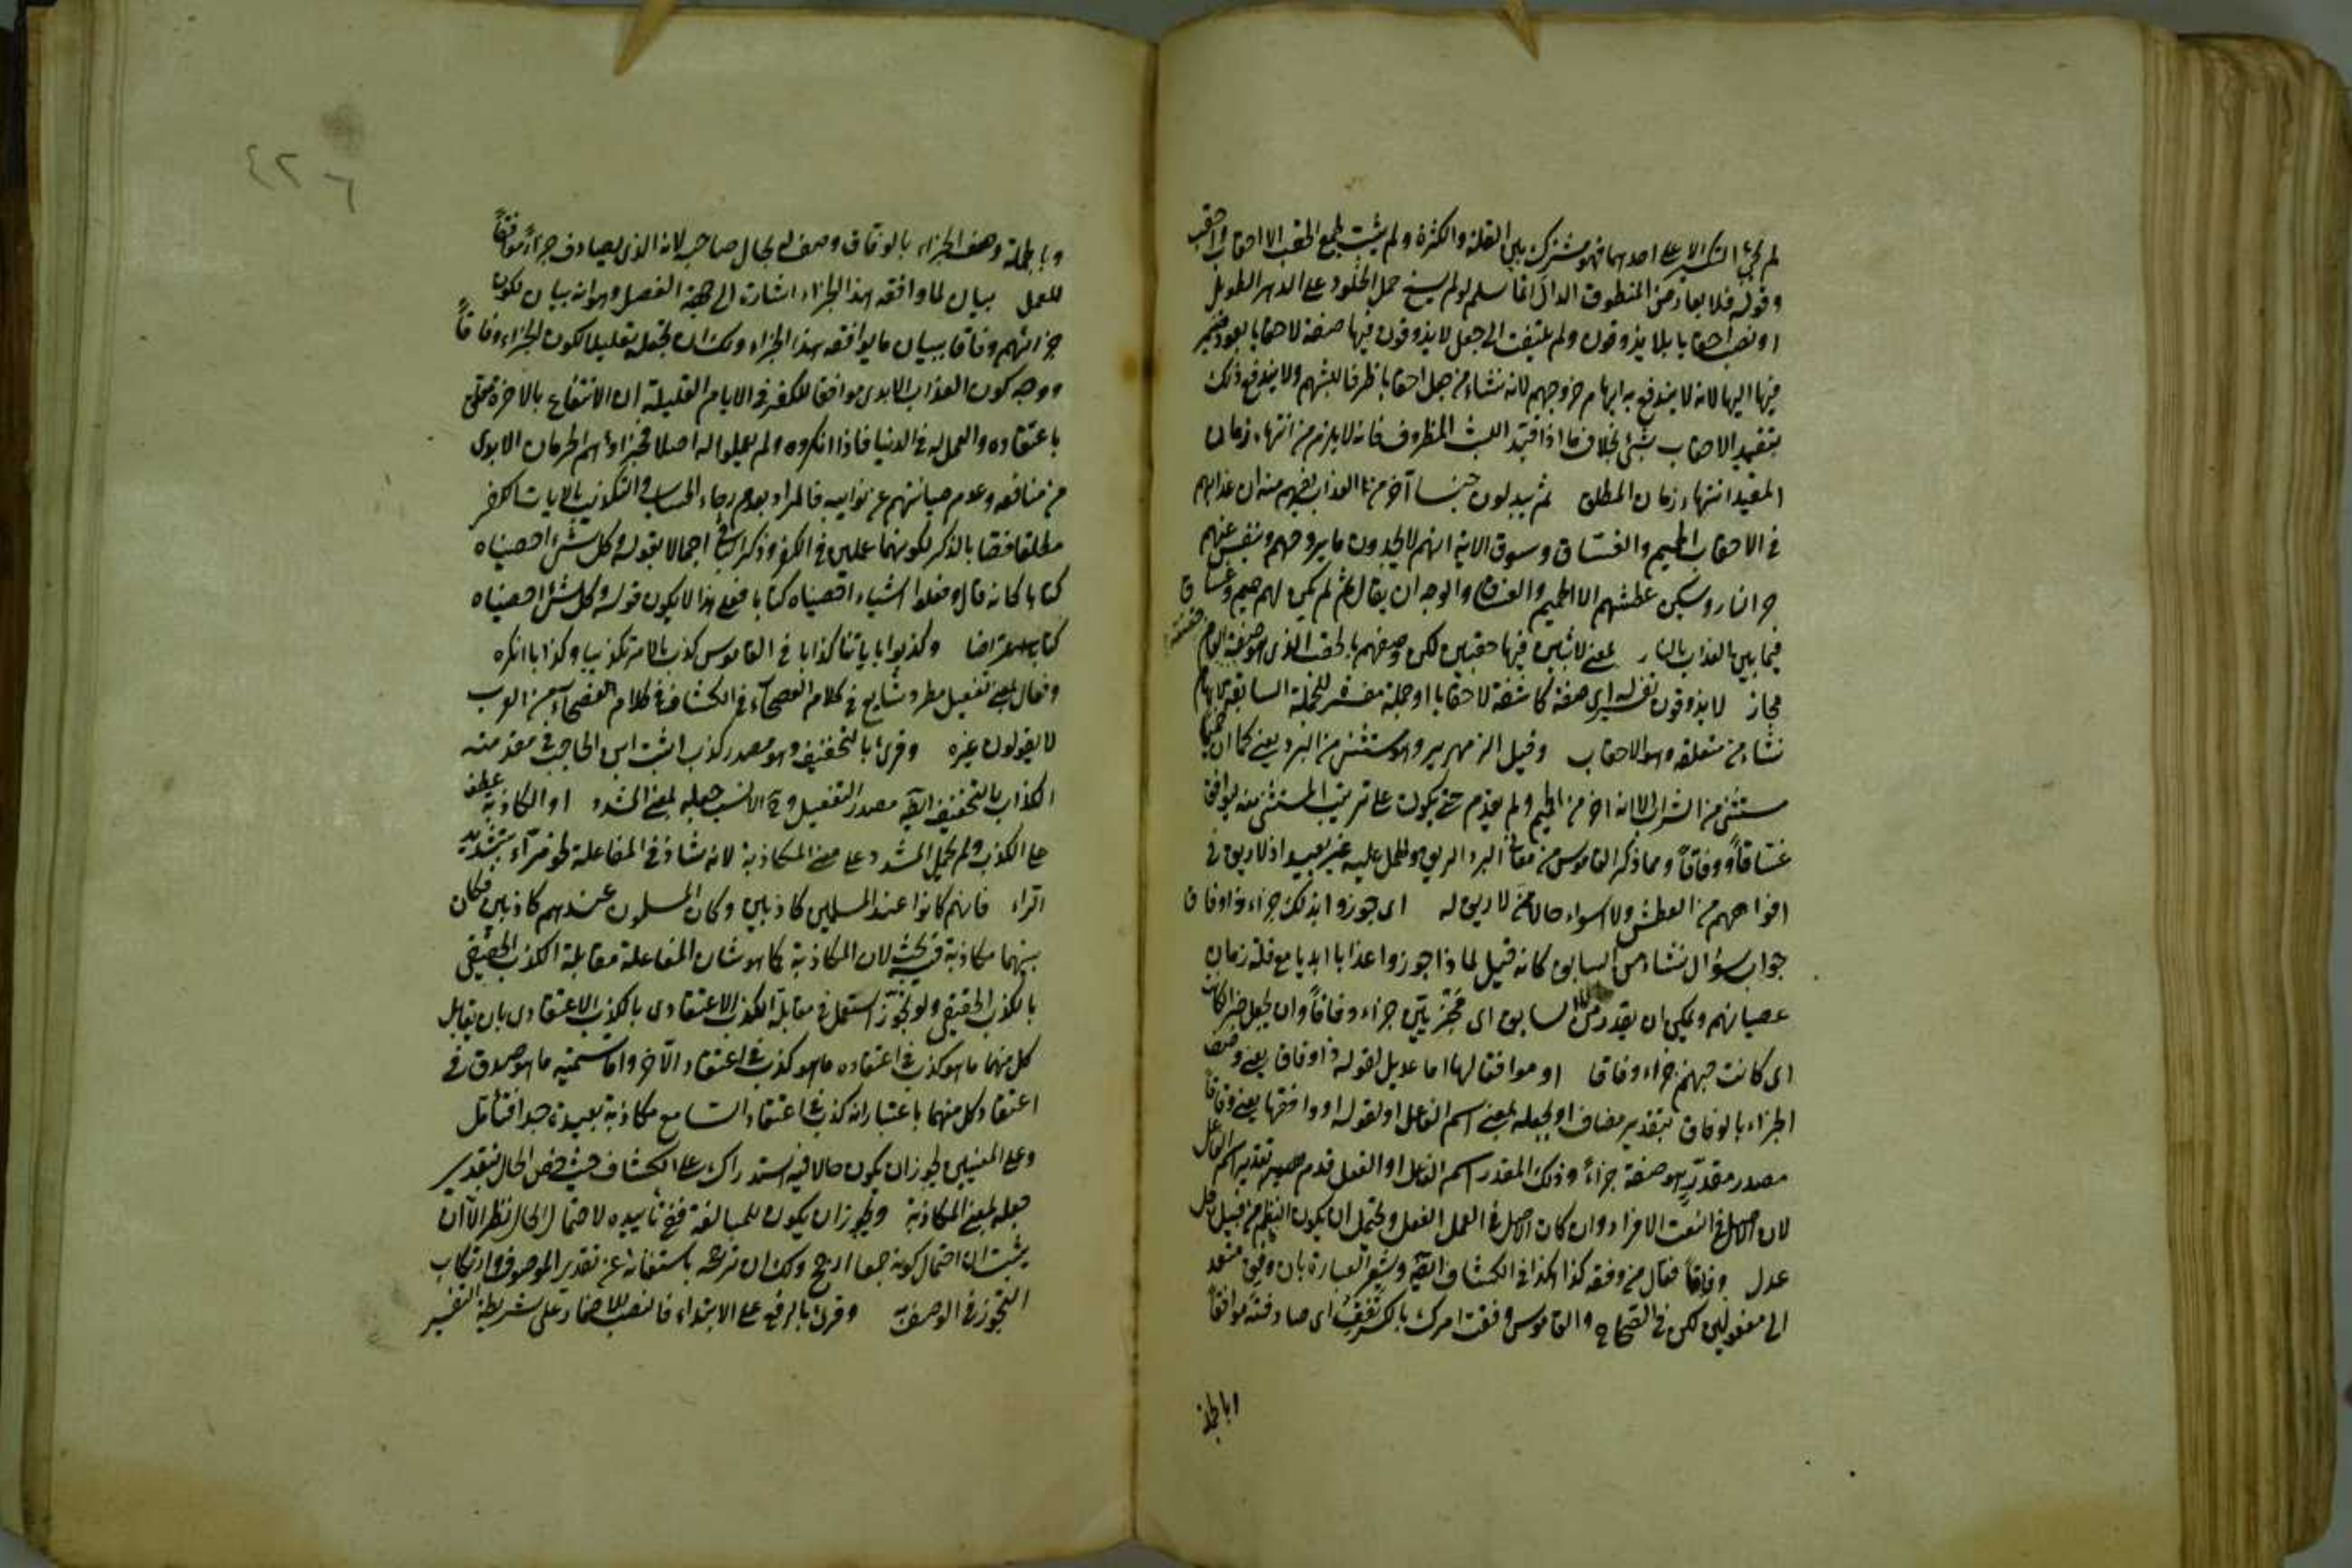 لم يجئ التكسير الا على احدهما فهو مشترك بين القلة والكثرة ولم يثبت لجمع الحقب الا احقاب واحقب
وقوله فلا يعارض المنطوق الدال انما سلم لو لم يسغ حمل الخلود على الدهر الطويل
او نصب احقابا بلا يذوقون ولم يلتفت الى جعل لا يذوقون فيها صفة لاحقابا بعود ضمير
فيها اليها لانه لا يندفع به ابهام خروجهم لانه نشاء من جعل احقابا ظرفا للبثهم ولا يندفع ذلك
بتقييد الاحقاب بشئ بخلاف ما اذا قيد اللبث المظروف فانه لا يلزم من انتهاء زمان
المقيد انتهاء زمان المطلق ثم يبدلون جنسا آخر من العذاب يفهم منه ان عذابهم
في الاحقاب الحميم والغساق وسوق الآية انهم لا يجدون ما يروحهم وينفس عنهم
حر النار ويسكن عطشهم الا الحميم والغساق والوجه ان يقال ثم لم يكن لهم حميم وغساق
فيما بين العذاب بالنار بمعنى لابثين فيها حقبين لكن وصفهم بالحقب الذى هو صفة العام
مجاز لا يذوقون تفسيره اى صفة كاشفة لاحقابا او جملة مفسرة للجملة السابقة لابهام
نشاء من متعلقه وهو الاحقاب وقيل الزمهرير وهو مستثنى من البرد يعنى كما ان حميما
مستثنى من الشراب الا انه اخر من الحميم ولم يقدم حتى يكون على ترتيب المستثنى منه ليوافق
غساقا ووفاقا ومما ذكر القاموس من معانى البرد الريق والحمل عليه غير بعيد اذ لا ريق في
افواههم من العطش ولا اسواء حالا ممن لا ريق له اى جوزوا بذلك جزاء ذا وفاق
جواب سؤال نشاء من السابق كانه قيل لماذا جوزوا عذابا ابديا مع قلة زمان
عصيانهم ويمكن ان يقدر من السابق اى مجزيين جزاء وفاقا وان يجعل خبرا لكانت
اى كانت جهنم جزاء وفاقا او موافقا لها اما عديل لقوله ذا وفاق يعنى وصف
الجزاء بالوفاق بتقدير مضاف او بجعله بمعنى اسم الفاعل او لقوله او وافقها يعنى وفاقا
مصدر مقدر هو صفة جزاء وذلك المقدر اسم الفاعل او الفعل قدم تقدير اسم الفاعل
لان الاصل في النعت الافراد وان كان الاصل في العمل الفعل ويحتمل ان يكون النظم من قبيل رجل
عدل وفاقا فعال من وفقه كذا هكذا في الكشاف ايضا ويشعر العبارة بان وفق متعد
الى مفعولين لكن في الصحاح والقاموس وفقت امرك بالكسر تفق اى صادفته موافقا
وبالجملة
٤٢٦
وبالجملة وصف الجزاء بالوفاق وصف له بحال صاحبه لانه الذى يصادف جزاءه موافقا
للعمل بيان لما وافقه هذا الجزاء اشارة الى جهة الفصل وهو انه بيان لكون
جزائهم وفاقا ببيان ما يوافقه هذا الجزاء ولك ان تجعله تعليلا لكون الجزاء وفاقا
ووجه كون العذاب الابدى موافقا للكفر في الايام القليلة ان الانتفاع بالآخرة
باعتقاده والعمل له في الدنيا فاذا انكروه ولم يعملوا له اصلا فجزاؤهم الحرمان الابدى
من منافعه وعدم صيانتهم عن نوائبه فالمراد بعدم رجاء الحساب والتكذيب بالآيات الكفر
مطلقا خصا بالذكر لكونهما علمين في الكفر وذكر اجمالا بقوله وكل شئ احصيناه
كتابا كانه قال وفعلوا اشياء احصيناه كتابا فعلى هذا لا يكون قوله وكل شئ احصيناه
كتابا اعتراضا وكذبوا بآياتنا كذابا في القاموس كذب بالامر تكذيبا وكذابا انكره
وفعال بمعنى تفعيل مطرد شايع في كلام الفصحاء في الكشاف في كلام الفصحاء من العرب
لا يقولون غيره وقرئ بالتخفيف وهو مصدر كذب اثبت ابن الحاجب في مقدمته
الكذاب بالتخفيف ايضا مصدر التفعيل وح الانسب جعله بمعنى المشدد او المكاذبة عطف
على الكذب ولم يحمل المشدد على معنى المكاذبة لانه شاذ في المفاعلة نحو مراء بتشديد
الراء فانهم كانوا عند المسلمين كاذبين وكان المسلمون عندهم كاذبين فكان
بينهما مكاذبة فيه بحث لان المكاذبة كما هو شان المفاعلة مقابلة الكذب الحقيقى
بالكذب الحقيقى ولو تجوز استعمل في مقابلة الكذب الاعتقادى بالكذب الاعتقادى بان يقابل
كل منهما ما هو كذب في اعتقاده ما هو كذب في اعتقاد الآخر واما تسمية ما هو صدق في
اعتقاد كل منهما باعتبار انه كذب في اعتقاد السامع مكاذبة بعيدة جدا فتأمل
وعلى المعنيين يجوز ان يكون حالا فيه استدراك على الكشاف حيث خص الحال بتقدير
جعله بمعنى المكاذبة ويجوز ان يكون للمبالغة فح تأييده لاحتمال الحال نظر الا ان
يثبت ان احتمال كونه جمعا ارجح ولك ان ترجحه باستغنائه عن تقدير الموصوف وارتكاب
التجوز في الوصف به وقرئ بالرفع على الابتداء فالنصب للاضمار على شريطة التفسير